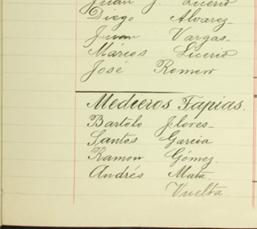 Juan J. Licerio
Diego Alvarez
Juan Vargas
Márcos Licerio
José Romero
Medieros Tapias.
Bartolo Flores
Santos Garcia
Ramon Gómez
Andrés Mata
Vuelta